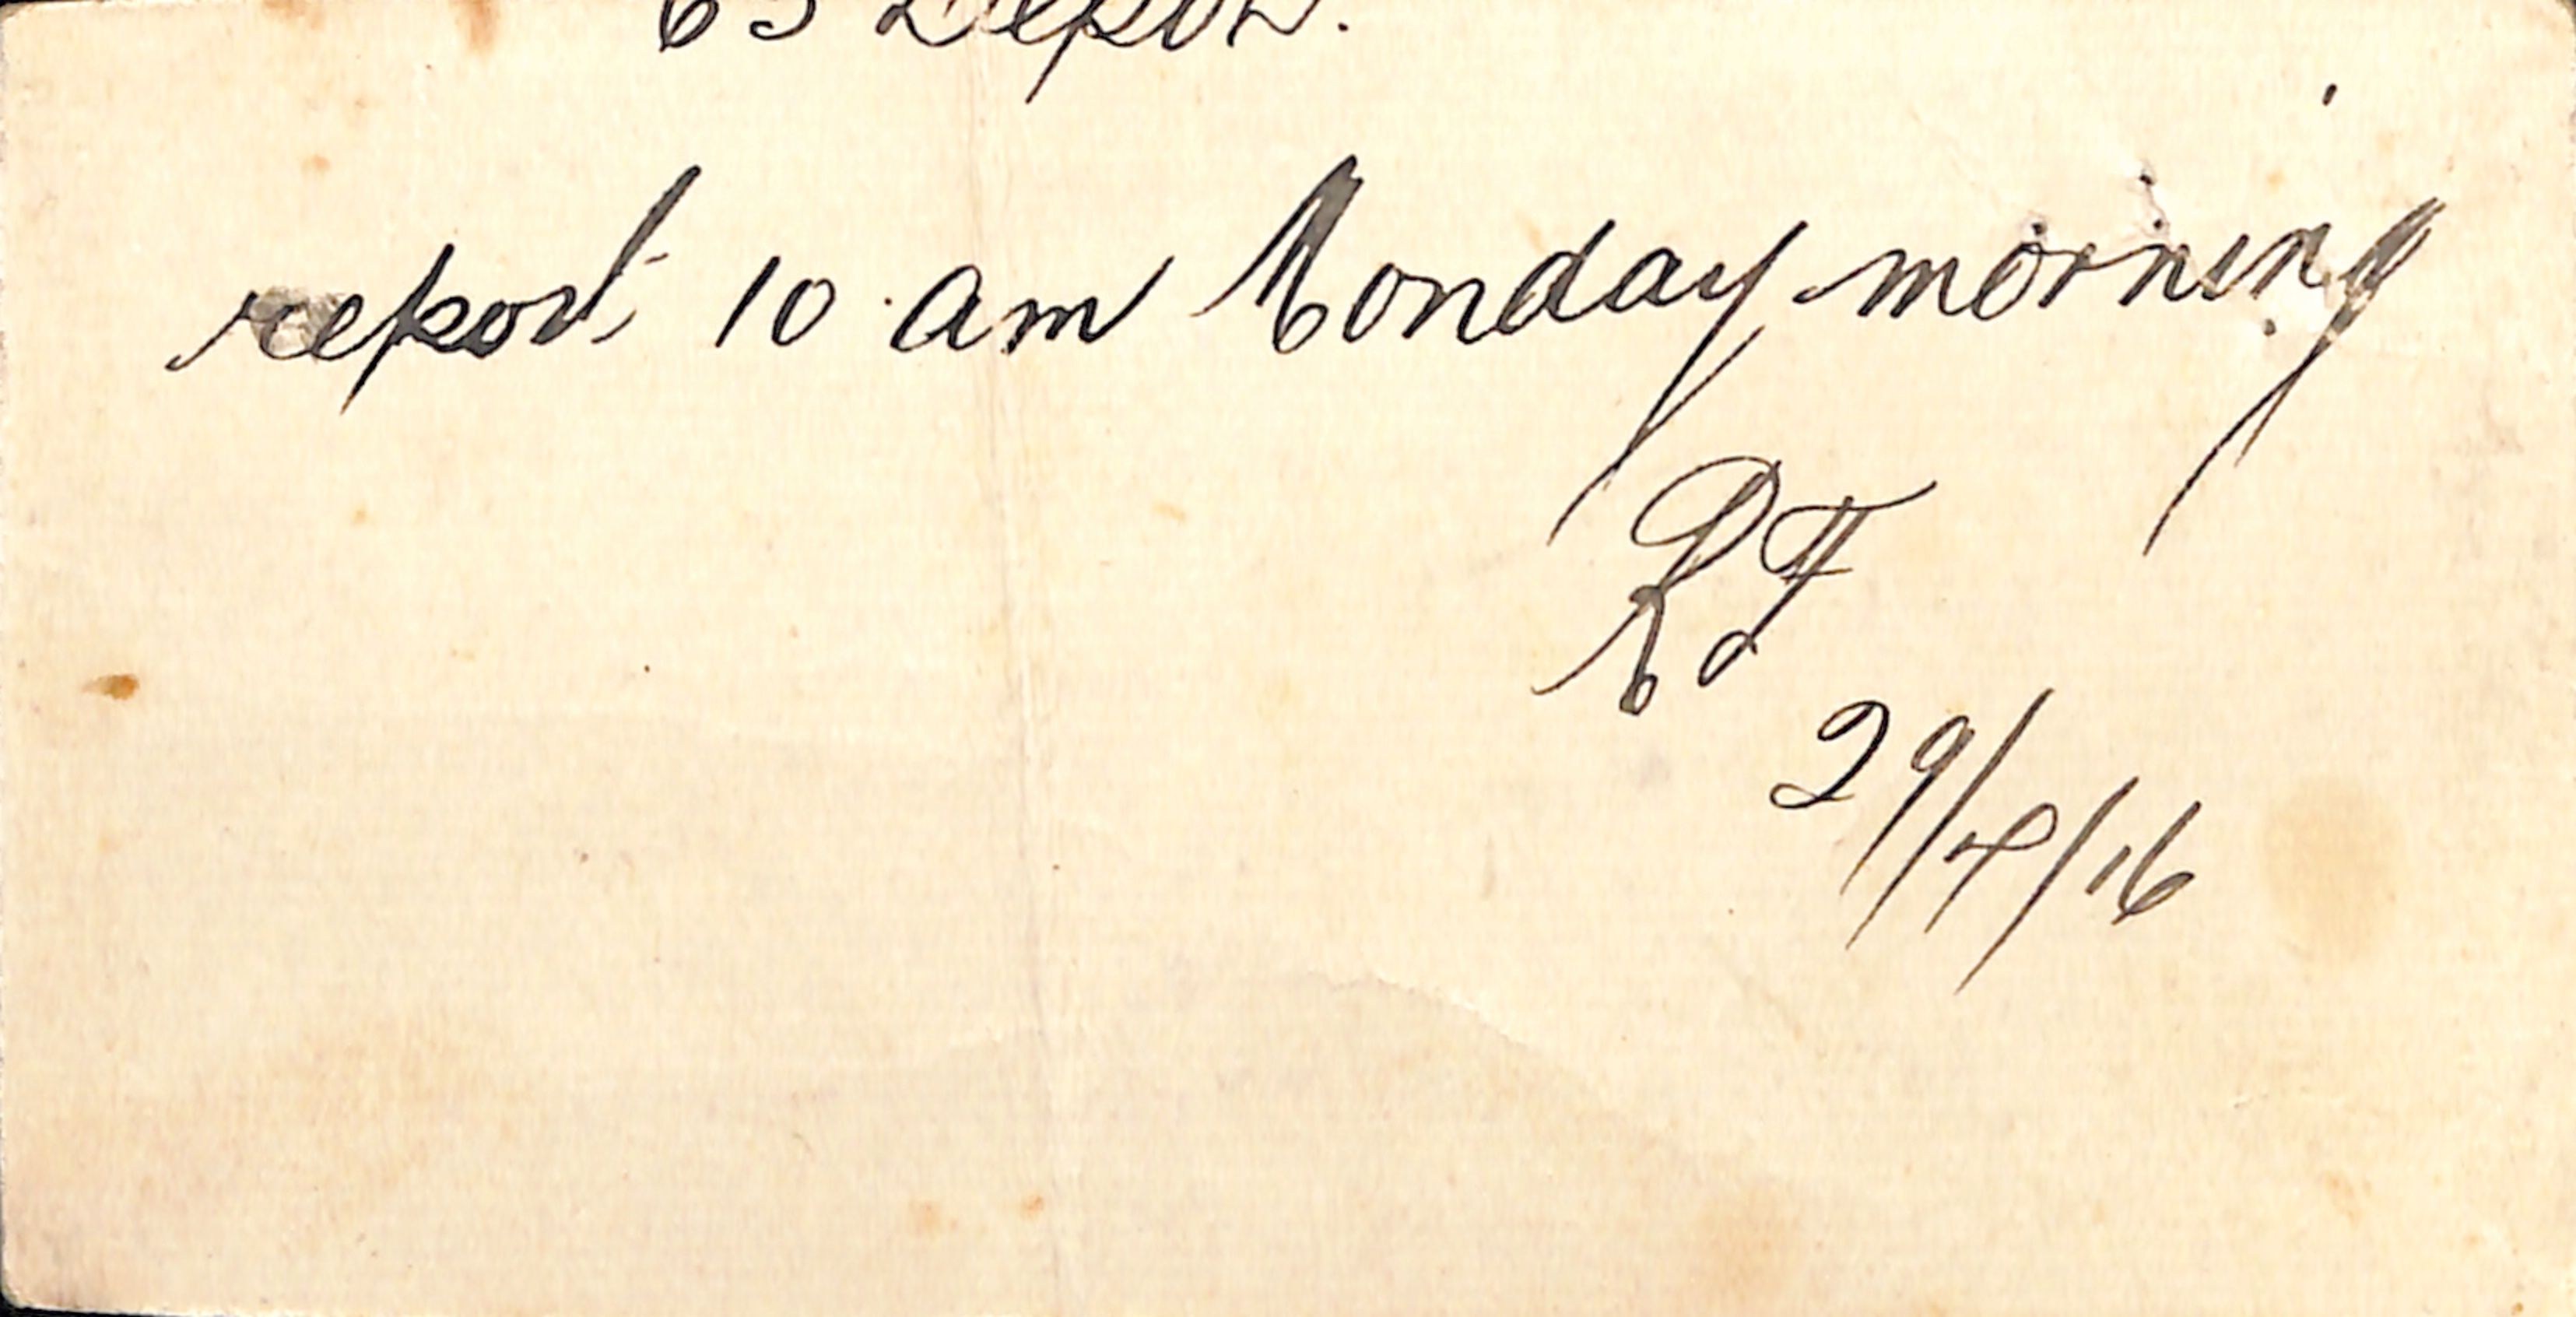 Depot.
report 10 am Monday morning
RF
29/4/16